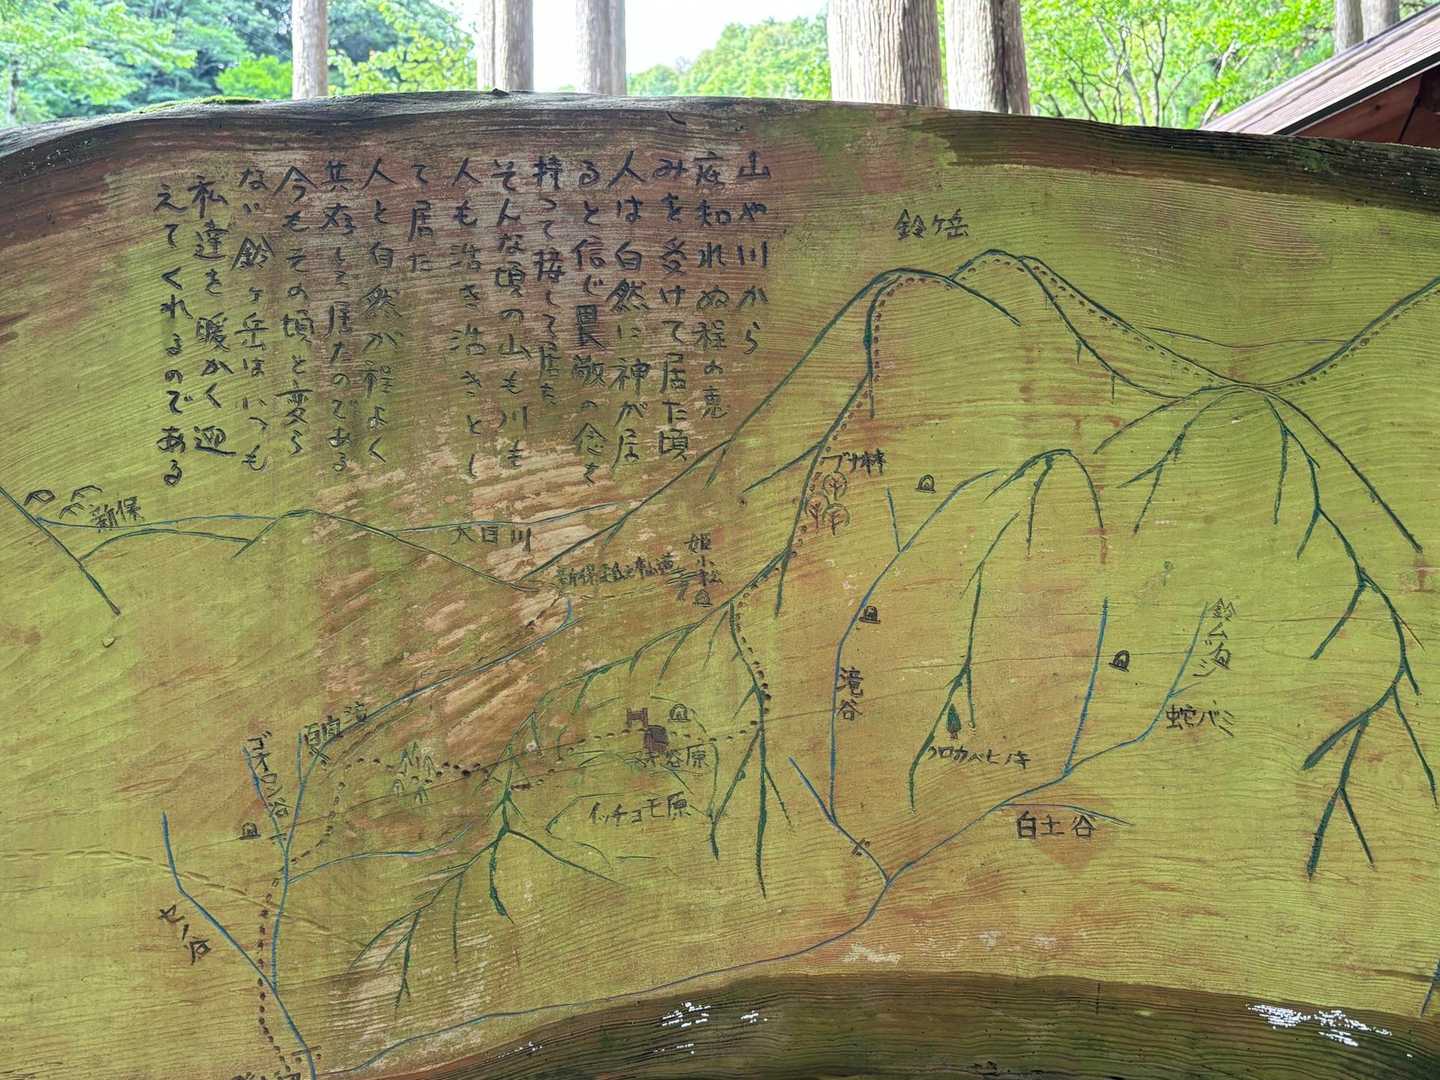 山や川から
底知れぬ程の恵
みを受けて居た頃
人は自然に神が居
ると信じ畏敬の念を
持って接して居た
そんな頃の山も川も
人も活き活きとし
て居た
人と自然が程よく
共存して居たのである
今もその頃と変ら
ない鈴ヶ岳はいつも
私達を暖かく迎
えてくれるのである
鈴ヶ岳
ブナ林
新保
大日川
姫小松
滝谷
蛇バミ
クロカベヒノキ
白土谷
イッチョモ原
ゴオワン谷
セノ谷